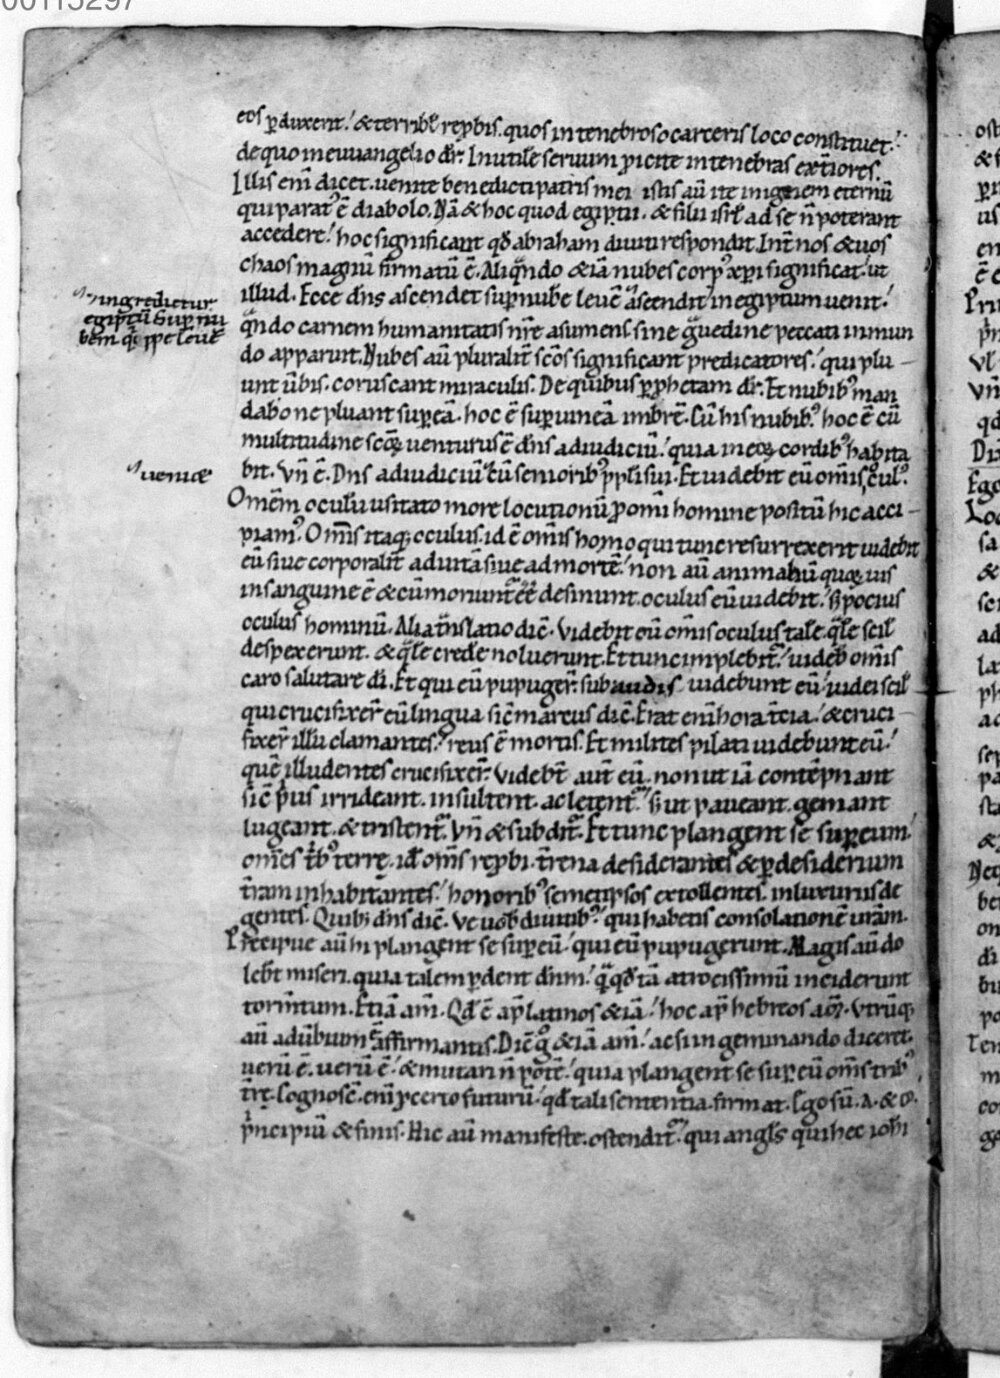 00115297
eos ꝑduxerit. & terribił rep̄bis. quos in tenebroso carceris loco constituet.
de quo in euuangelio dr̄. Inutilē seruum ꝓicite in tenebras ext̄iores.
Illis eni̅ dicet. uenite benedicti patris mei istis au̅ ite in ignem eternu̅
qui parat᷒ e̅ diabolo. Na̅ & hoc quod egiptii. & filii isrł ad se n̅ poterant
accedere. hoc significant qd̅ abraham diuiti respondit. Int̄ nos & uos
chaos magnu̅ firmatu̅ e̅. Aliqn̅do & ia̅ nubes corp᷒ xp̅i significat. ut
illud. Ecce dn̅s ascendet suꝑ nube̅ leue̅ ascendit in egiptum uenit.
qn̅do carnem humanitatis nr̅e asumens. sine g̊uedine peccati in mun
do apparuit. Nubes au̅ pluralit̄ sc̅os significant predicatores. qui plu
unt u̅bis. coruscant miraculis. De quibus ꝑ ꝓphetam dr̄. Et nubib᷒ man
dabo ne pluant suꝑ ea̅. hoc e̅ suꝑ uinea̅ imbre̅. Cu̅ his nubib᷒ hoc e̅ cu̅
multitudine sc̅oꝝ uenturus e̅ dn̅s ad iudiciu̅. quia in eoꝝ cordib᷒ habita
bit. Vn̅ e̅. Dn̅s ad iudiciu̅ cu̅ seniorib᷒ ppłi sui. Et uidebit eu̅ om̅is ocul᷒.
Omne̅m oculu̅ usitato more locutionu̅ ꝓ omi̅ homine positu̅ hic acci
piam᷒. Om̅is itaq; oculus. id e̅ om̅is homo qui tunc resurrexerit uidebit
eu̅ siue corporalit̄ ad uita̅ siue ad morte̅. non au̅ animaliu̅ quoꝝ uis
in sanguine e̅ & cu̅ moriunt᷑ e̅e desinunt. oculus eu̅ uidebit. s; pocius
oculus hominu̅. Alia tn̅slatio dic̅. Videbit eu̅ om̅is oculus tale̅. qłe scił
despexerunt. & qłe credere noluerunt. Et tunc implebit᷑. uideb̅ om̅is
caro salutare di̅. Et qui eu̅ pupuger̅. subaudis uidebunt eu̅. iudei scił
qui crucifixer̅ eu̅ lingua sic̅ marcus dic̅. Erat eni̅ hora t̄cia. & cruci
fixer̅ illu̅ clamantes. reus e̅ mortis. Et milites pilati uidebunt eu̅.
que̅ illudentes crucifixer̅. Videb̅t aut̅ eu̅. non ut ia̅ conte̅pnant
sic̅ p̅us irrideant. insultent. ac letent᷑. s; ut paueant. gemant
lugeant. & tristent᷑. Vn̅ & subdit᷑. Et tunc plangent se suꝑ eum
om̅es t̅b᷒ terre̜. id̅ om̅s rep̅bi. t̅rena desiderantes & ꝑ desiderium
t̅ram inhabitantes. honorib᷒ semetipsos extollentes. in luxuriis de
gentes. Quib; dn̅s dic̅. Ve uob̅ diuitib᷒. qui habetis consolatione̅ ur̅am.
Precipue au̅ hi plangent se suꝑ eu̅. qui eu̅ pupugerunt. Magis au̅ do
leb̅t miseri. quia talem ꝑdent dn̅m. q̊ qd̅ ta̅ atrocissimu̅ inciderunt
torm̅tum. Etia̅ am̅. Qd̅ e̅ ap̅ latinos & ia̅. hoc ap̅ hebreos am̅. Vtru̅q;
au̅ adu̅bium e̅ affirmantis. Dic̅ g̊ & ia̅ am̅. ac si ingeminando diceret.
ueru̅ e̅. ueru̅ e̅. & mutari n̅ pote̅. quia plangent se suꝑ eu̅ om̅s trib᷒
t̅re̜. Cognosc̅. eni̅ ꝓ certo futuru̅. qd̅ tali sententia firmat. Ego su̅ .A. & ω.
p̅ncipiu̅ & finis. Hic au̅ manifeste ostendit᷑. qui angłs qui hec ioh̅i
ingredietur
egiptu̅ Super nu
bem qi ppe leue̅
ueniae